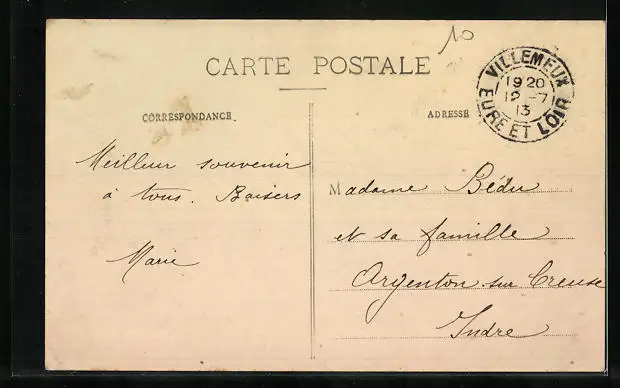 10
CARTE POSTALE
VILLEMEUX
19 20
12 - 7
13
EURE ET LOIR
CORRESPONDANCE.
ADRESSE
Meilleur souvenir
à tous. Baisers
Marie
Madame Bédu
et sa famille
Argenton sur Creuse
Indre